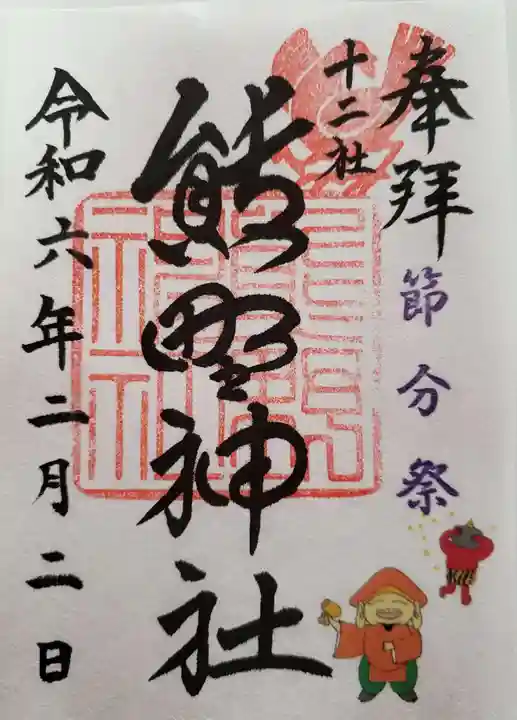 奉拝
節分祭
十二社
熊野神社
令和六年二月二日